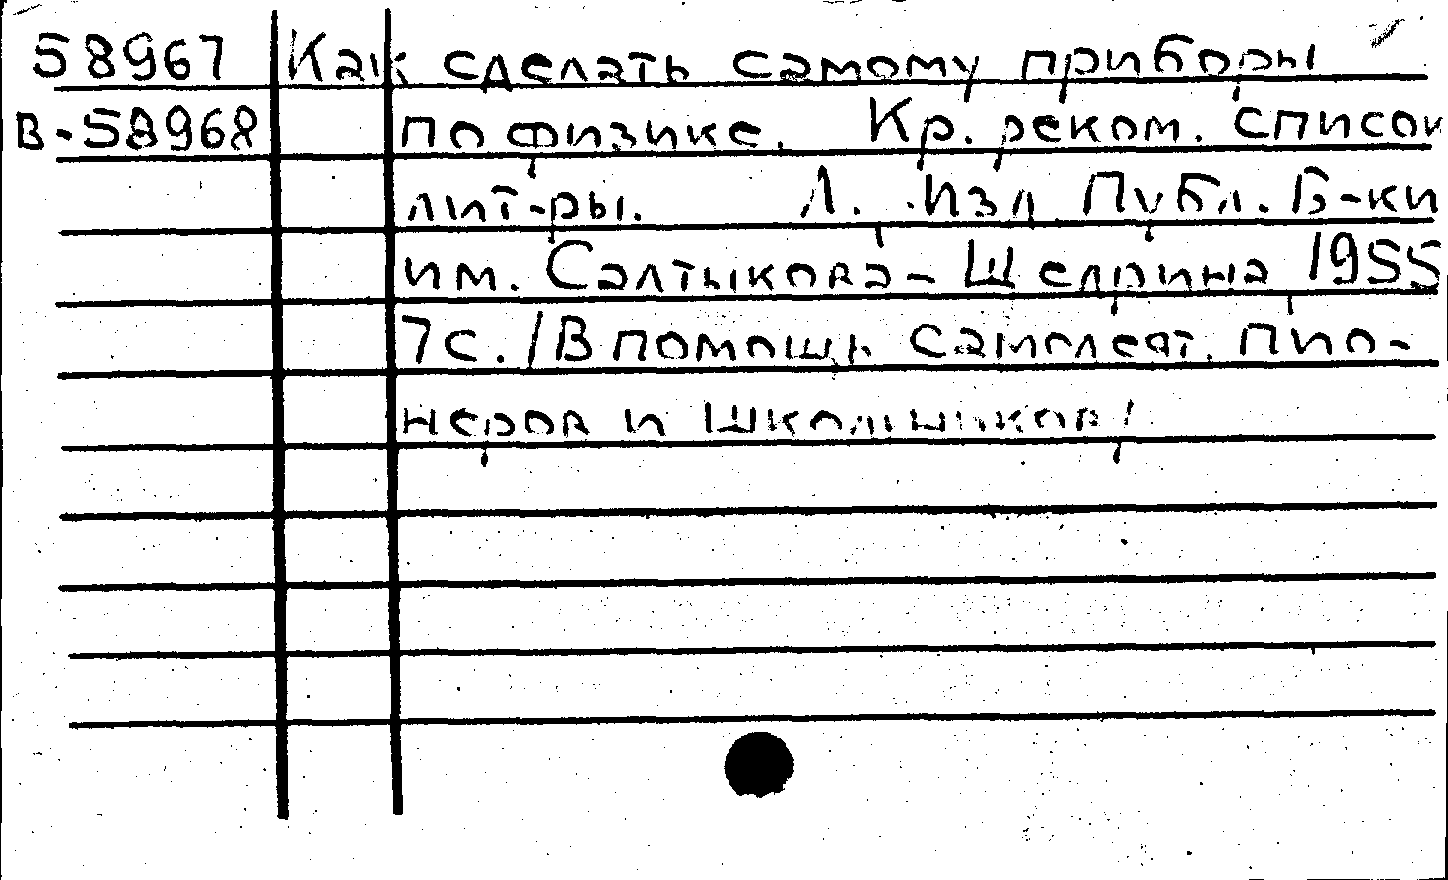 58967 Как сделать самому приборы
В-58968 по физике. Кр. реком. список
лит-ры. Л. Изд. Публ. Б-ки
им. Салтыкова-Щедрина 1955
7с. /В помощь самодеят. пио-
неров и школьников/